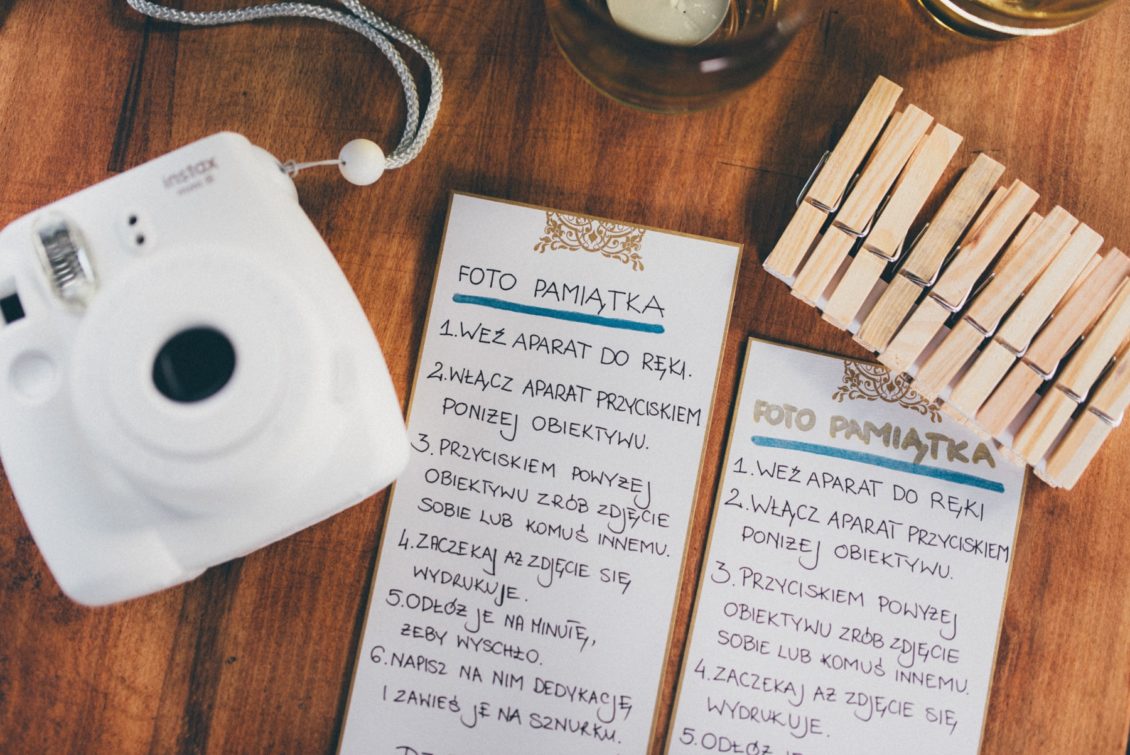 instax
mini 8
FOTO PAMIĄTKA
1. WEŹ APARAT DO RĘKI.
2. WŁĄCZ APARAT PRZYCISKIEM
PONIŻEJ OBIEKTYWU.
3. PRZYCISKIEM POWYŻEJ
OBIEKTYWU ZRÓB ZDJĘCIE
SOBIE LUB KOMUŚ INNEMU.
4. ZACZEKAJ AŻ ZDJĘCIE SIĘ
WYDRUKUJE.
5. ODŁÓŻ JE NA MINUTĘ,
ŻEBY WYSCHŁO.
6. NAPISZ NA NIM DEDYKACJĘ
I ZAWIEŚ JE NA SZNURKU.
FOTO PAMIĄTKA
1. WEŹ APARAT DO RĘKI
2. WŁĄCZ APARAT PRZYCISKIEM
PONIŻEJ OBIEKTYWU.
3. PRZYCISKIEM POWYŻEJ
OBIEKTYWU ZRÓB ZDJĘCIE
SOBIE LUB KOMUŚ INNEMU.
4. ZACZEKAJ AŻ ZDJĘCIE SIĘ
WYDRUKUJE.
5. ODŁÓŻ